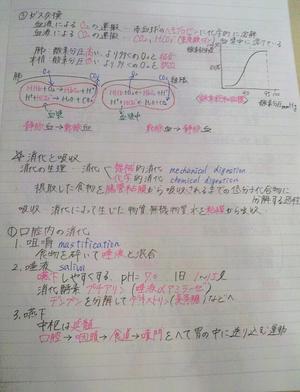 ②ガス交換
血液による O₂の運搬 … 赤血球のヘモグロビンに化学的に溶解
血液による CO₂の運搬
肺 : 酸素分圧高い より多くのO₂と結合
末梢 : 酸素分圧低い より多くのO₂を放出
肺 O₂ CO₂ O₂ CO₂ 組織
血漿 血漿
静脈血→動脈血 動脈血→静脈血
酸素分圧 mmHg
消化と吸収
消化の生理 - 消化 機械的消化 mechanical digestion
化学的消化 chemical digestion
摂取した食物を腸管粘膜から吸収されるまでの低分子化合物に
分解する過程
吸収 : 消化によって生じた物質、無機物質、水を粘膜から吸収
①口腔内の消化
1. 咀嚼 mastification
食物を砕いて唾液と混合
2. 唾液 saliva
嚥下しやすくする. pH=7.0 1日 1〜1.5ℓ
消化酵素 プチアリン (唾液αアミラーゼ)
デンプンを分解してデキストリン(麦芽糖)などへ
3. 嚥下
中枢は延髄
口腔→咽頭→食道→噴門をへて胃の中に送り込む運動